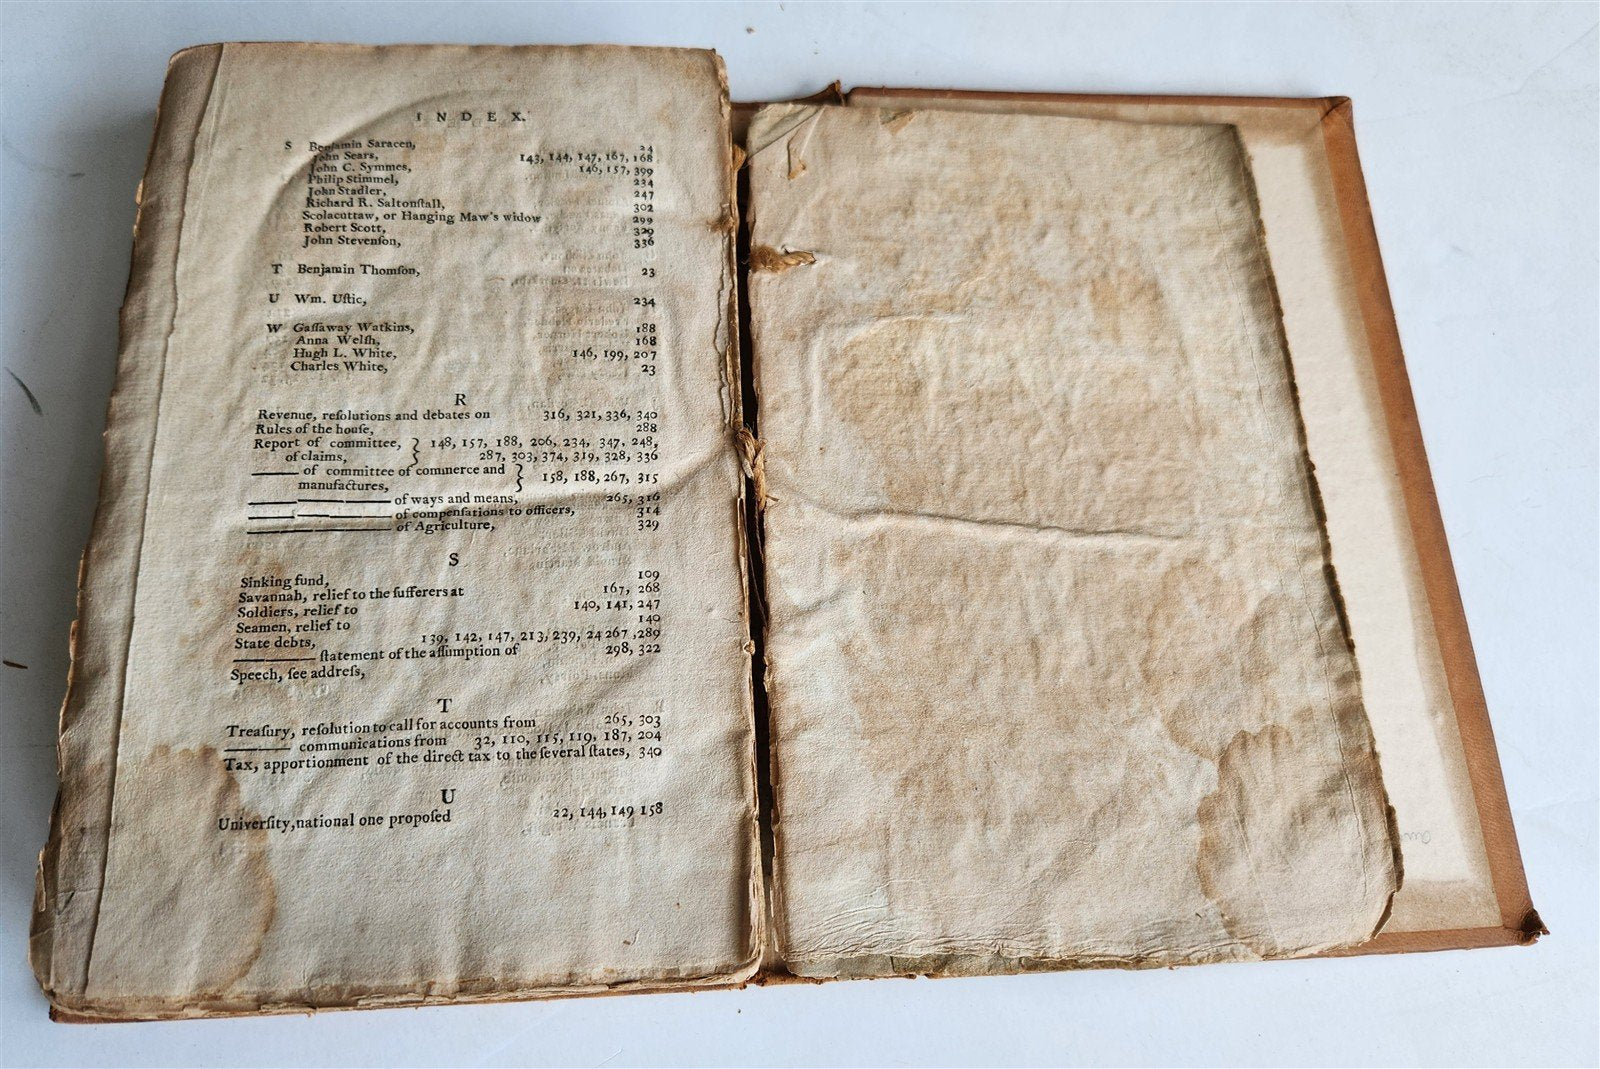 INDEX.
S Benjamin Saracen, 24
John Sears, 143, 144, 147, 167, 168
John C. Symmes, 146, 157, 399
Philip Stimmel, 234
John Stadler, 247
Richard R. Saltonſtall, 302
Scolacuttaw, or Hanging Maw's widow 299
Robert Scott, 329
John Stevenſon, 336
T Benjamin Thomſon, 23
U Wm. Uſtic, 234
W Gaſſaway Watkins, 188
Anna Welſh, 168
Hugh L. White, 146, 199, 207
Charles White, 23
R
Revenue, reſolutions and debates on 316, 321, 336, 340
Rules of the houſe, 288
Report of committee, } 148, 157, 188, 206, 234, 347, 248,
of claims, } 287, 303, 374, 319, 328, 336
—— of committee of commerce and
manufactures, } 158, 188, 267, 315
—— —— of ways and means, 265, 316
—— —— of compenſations to officers, 314
—— —— of Agriculture, 329
S
Sinking fund, 109
Savannah, relief to the ſufferers at 167, 268
Soldiers, relief to 140, 141, 247
Seamen, relief to 140
State debts, 139, 142, 147, 213, 239, 24 267 ,289
—— —— ſtatement of the aſſumption of 298, 322
Speech, ſee addreſs,
T
Treaſury, reſolution to call for accounts from 265, 303
—— communications from 32, 110, 115, 119, 187, 204
Tax, apportionment of the direct tax to the ſeveral ſtates, 340
U
Univerſity, national one propoſed 22, 144, 149 158